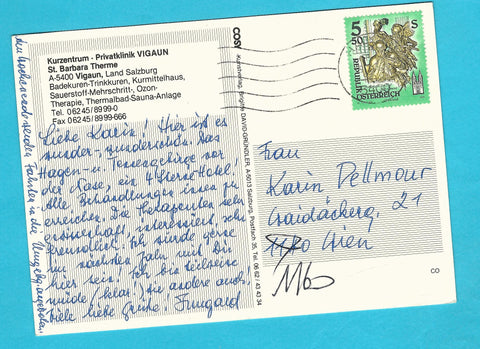 Kurzentrum - Privatklinik VIGAUN
St. Barbara Therme
A-5400 Vigaun, Land Salzburg
Badekuren-Trinkkuren, Kurmittelhaus,
Sauerstoff-Mehrschritt-, Ozon-
Therapie, Thermalbad-Sauna-Anlage
Tel. 06245/8999-0
Fax 06245/8999-666
Liebe Karin! Hier ist es
wunder-wunderschön. Das
Hagen- u. Tennengebirge vor
der Nase, ein 4 Sterne Hotel!
Alle Behandlungen innen zu
erreichen. Die Therapeuten sehr
ernsthaft, interessiert, sehr
freundlich. Ich würde gerne
im nächsten Jahr mit Dir
hier sein! Ich bin teilweise
müde (klar!) die andere auch!
Viele liebe Grüße! Irmgard
Fahrten in die Umgebung
COSY
DAVID-GRÜNDLER, A-5013 Salzburg, Postfach 35, Tel. 06 62 / 43 43 34
5 50
S
REPUBLIK
ÖSTERREICH
Frau
Karin Dellmour
21
Wien
1160
CO